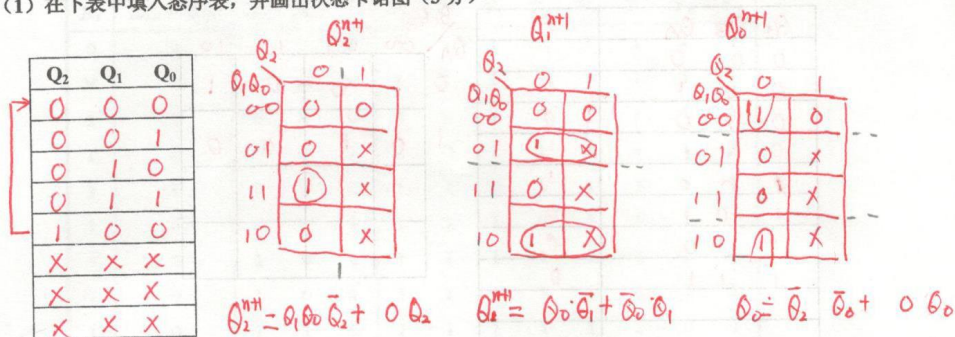 (1) 在下表中填入态序表，并画出状态卡诺图 (5 分)
Q₂ Q₁ Q₀
0 0 0
0 0 1
0 1 0
0 1 1
1 0 0
X X X
X X X
X X X
Q₂ⁿ⁺¹
Q₂
0 1
Q₁Q₀
00 0 0
01 0 X
11 1 X
10 0 X
Q₂ⁿ⁺¹ = Q₁Q₀Q̄₂ + 0 Q₂
Q₁ⁿ⁺¹
Q₂
0 1
Q₁Q₀
00 0 0
01 1 X
11 0 X
10 1 X
ⁿ⁺¹ = Q₀·Q̄₁ + Q̄₀·Q₁
Q₀ⁿ⁺¹
Q₂
0 1
Q₁Q₀
00 1 0
01 0 X
11 0 X
10 1 X
Q₀ = Q̄₂ Q̄₀ + 0 Q₀